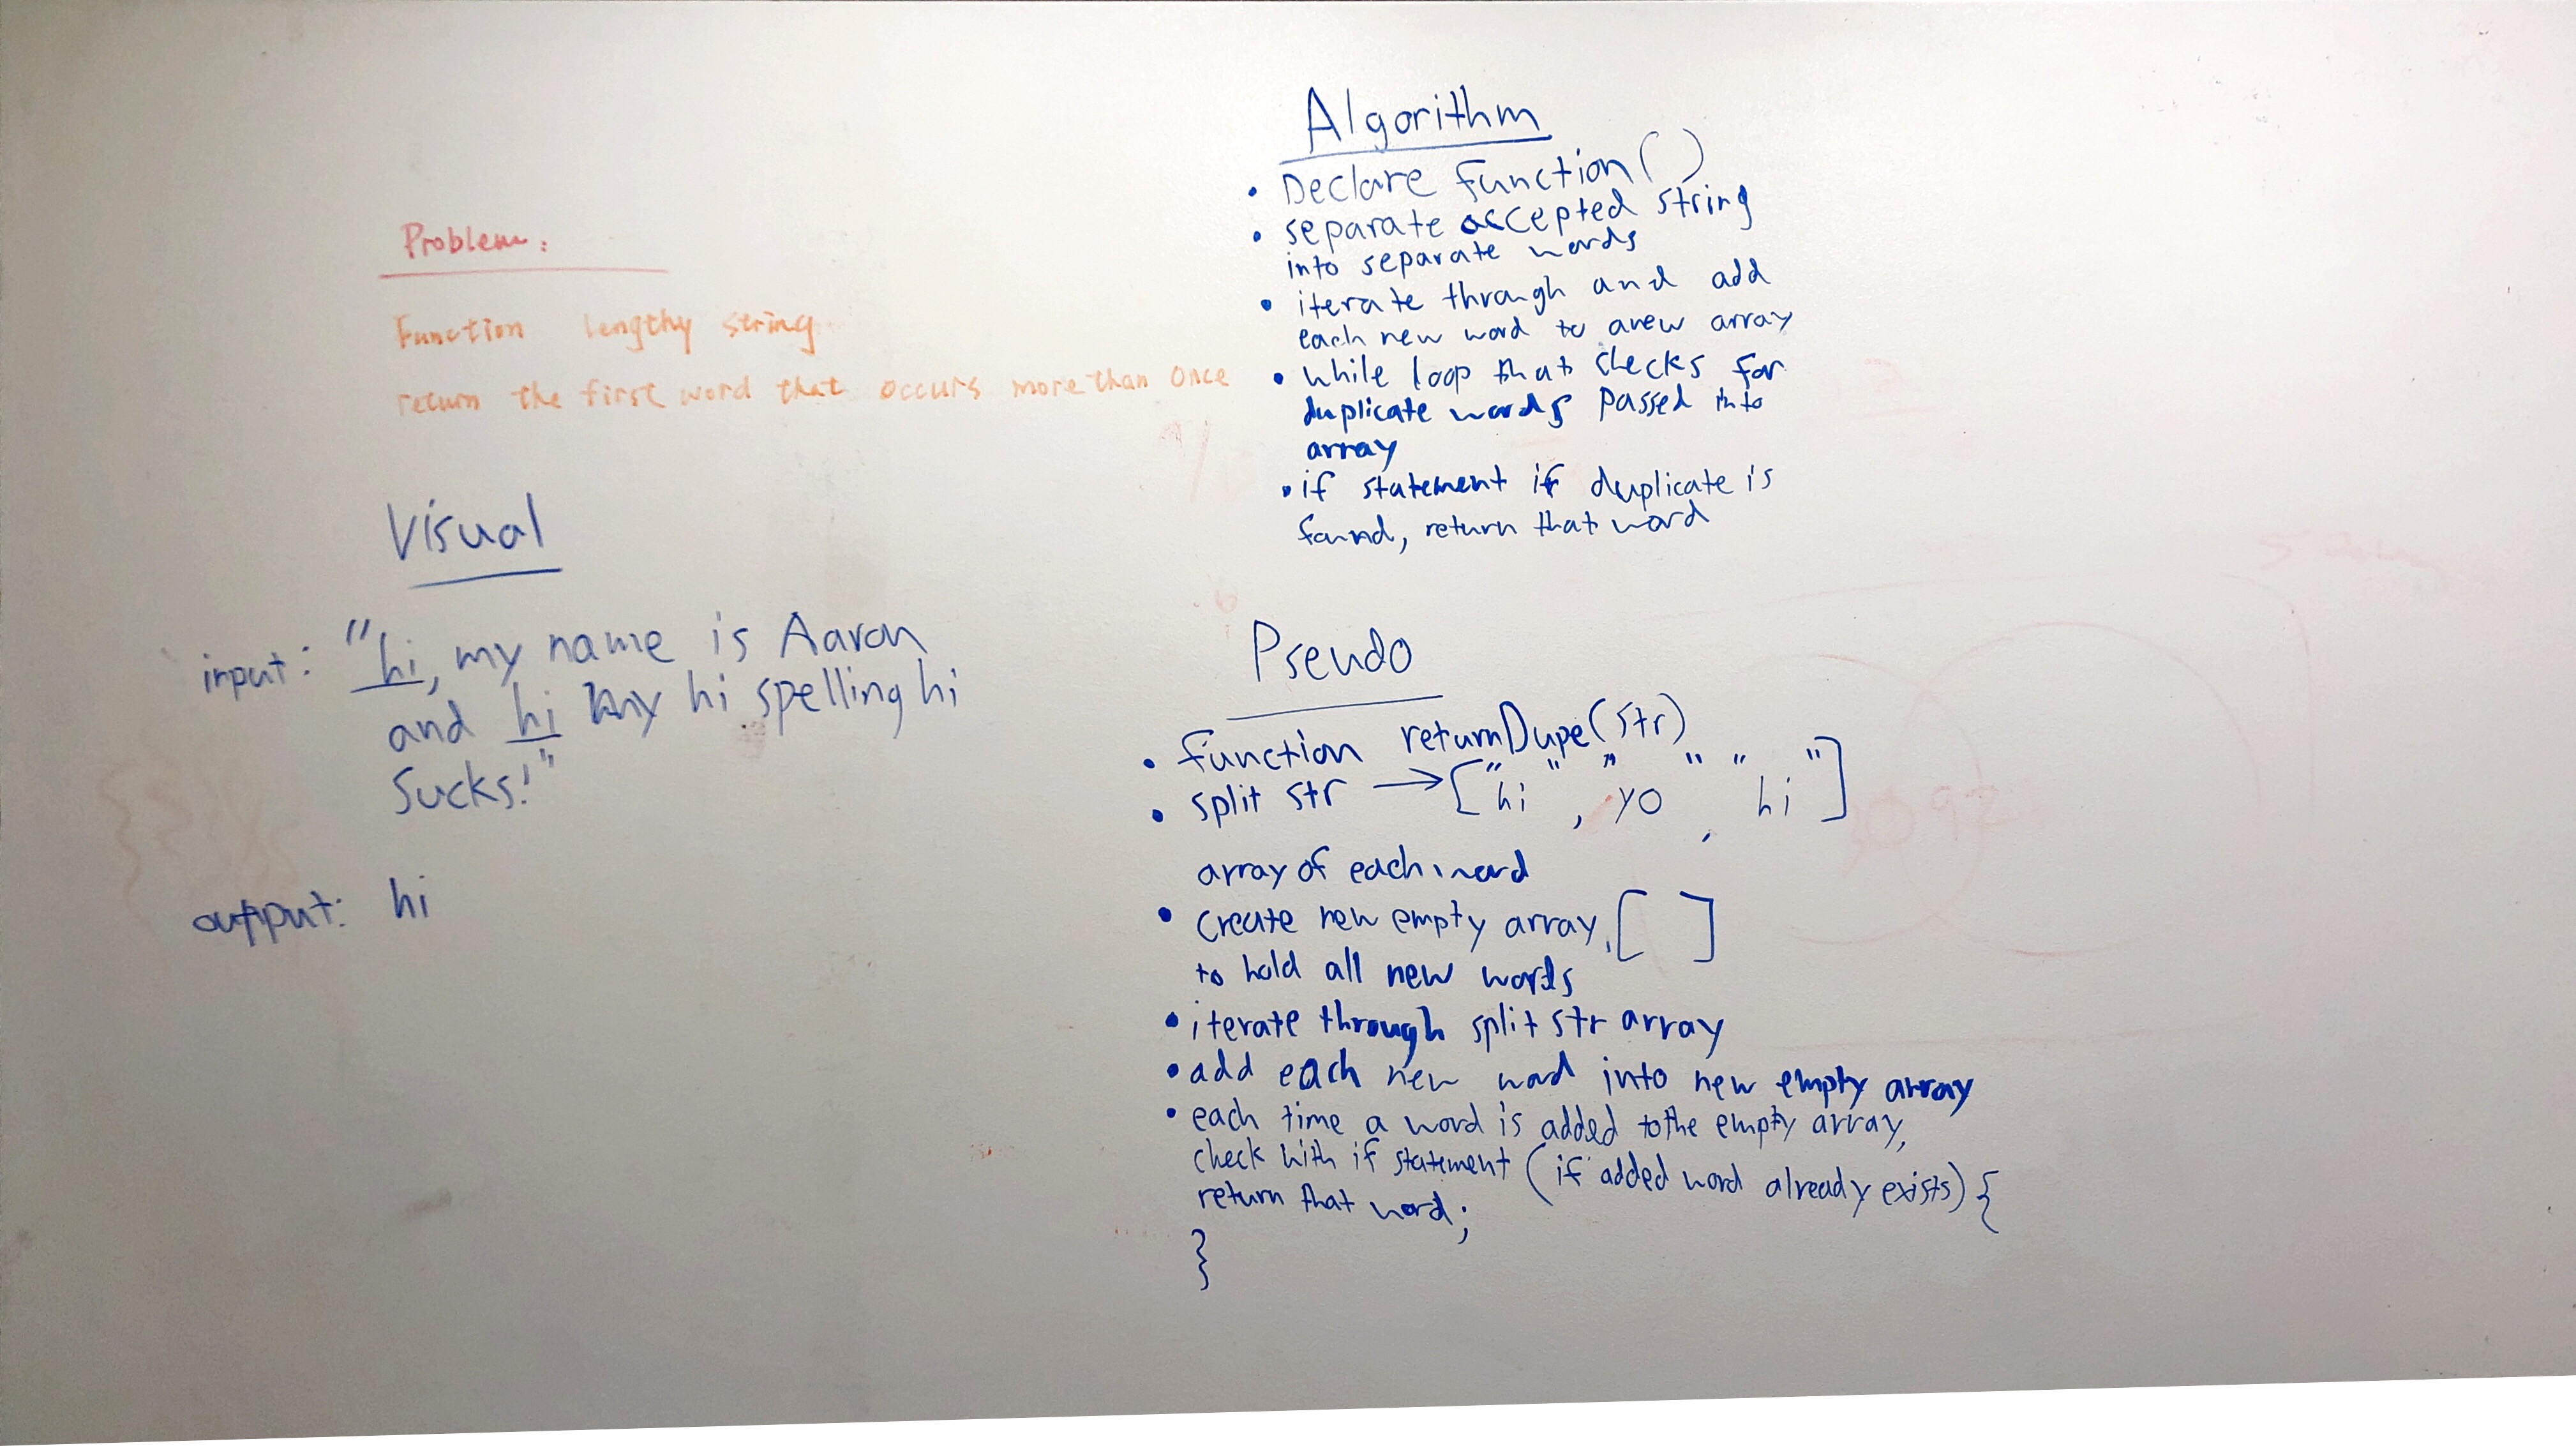 Problem:
Function lengthy string
return the first word that occurs more than once
Visual
input: "hi, my name is Aaron
and hi my hi spelling hi
Sucks!"
output: hi
Algorithm
• Declare function( )
• separate accepted string
into separate words
• iterate through and add
each new word to a new array
• while loop that checks for
duplicate words passed into
array
• if statement if duplicate is
found, return that word
Pseudo
• function returnDupe(str)
• split str → ["hi", "yo", "hi"]
array of each word
• create new empty array, [ ]
to hold all new words
• iterate through split str array
• add each new word into new empty array
• each time a word is added to the empty array,
check with if statement (if added word already exists) {
return that word;
}